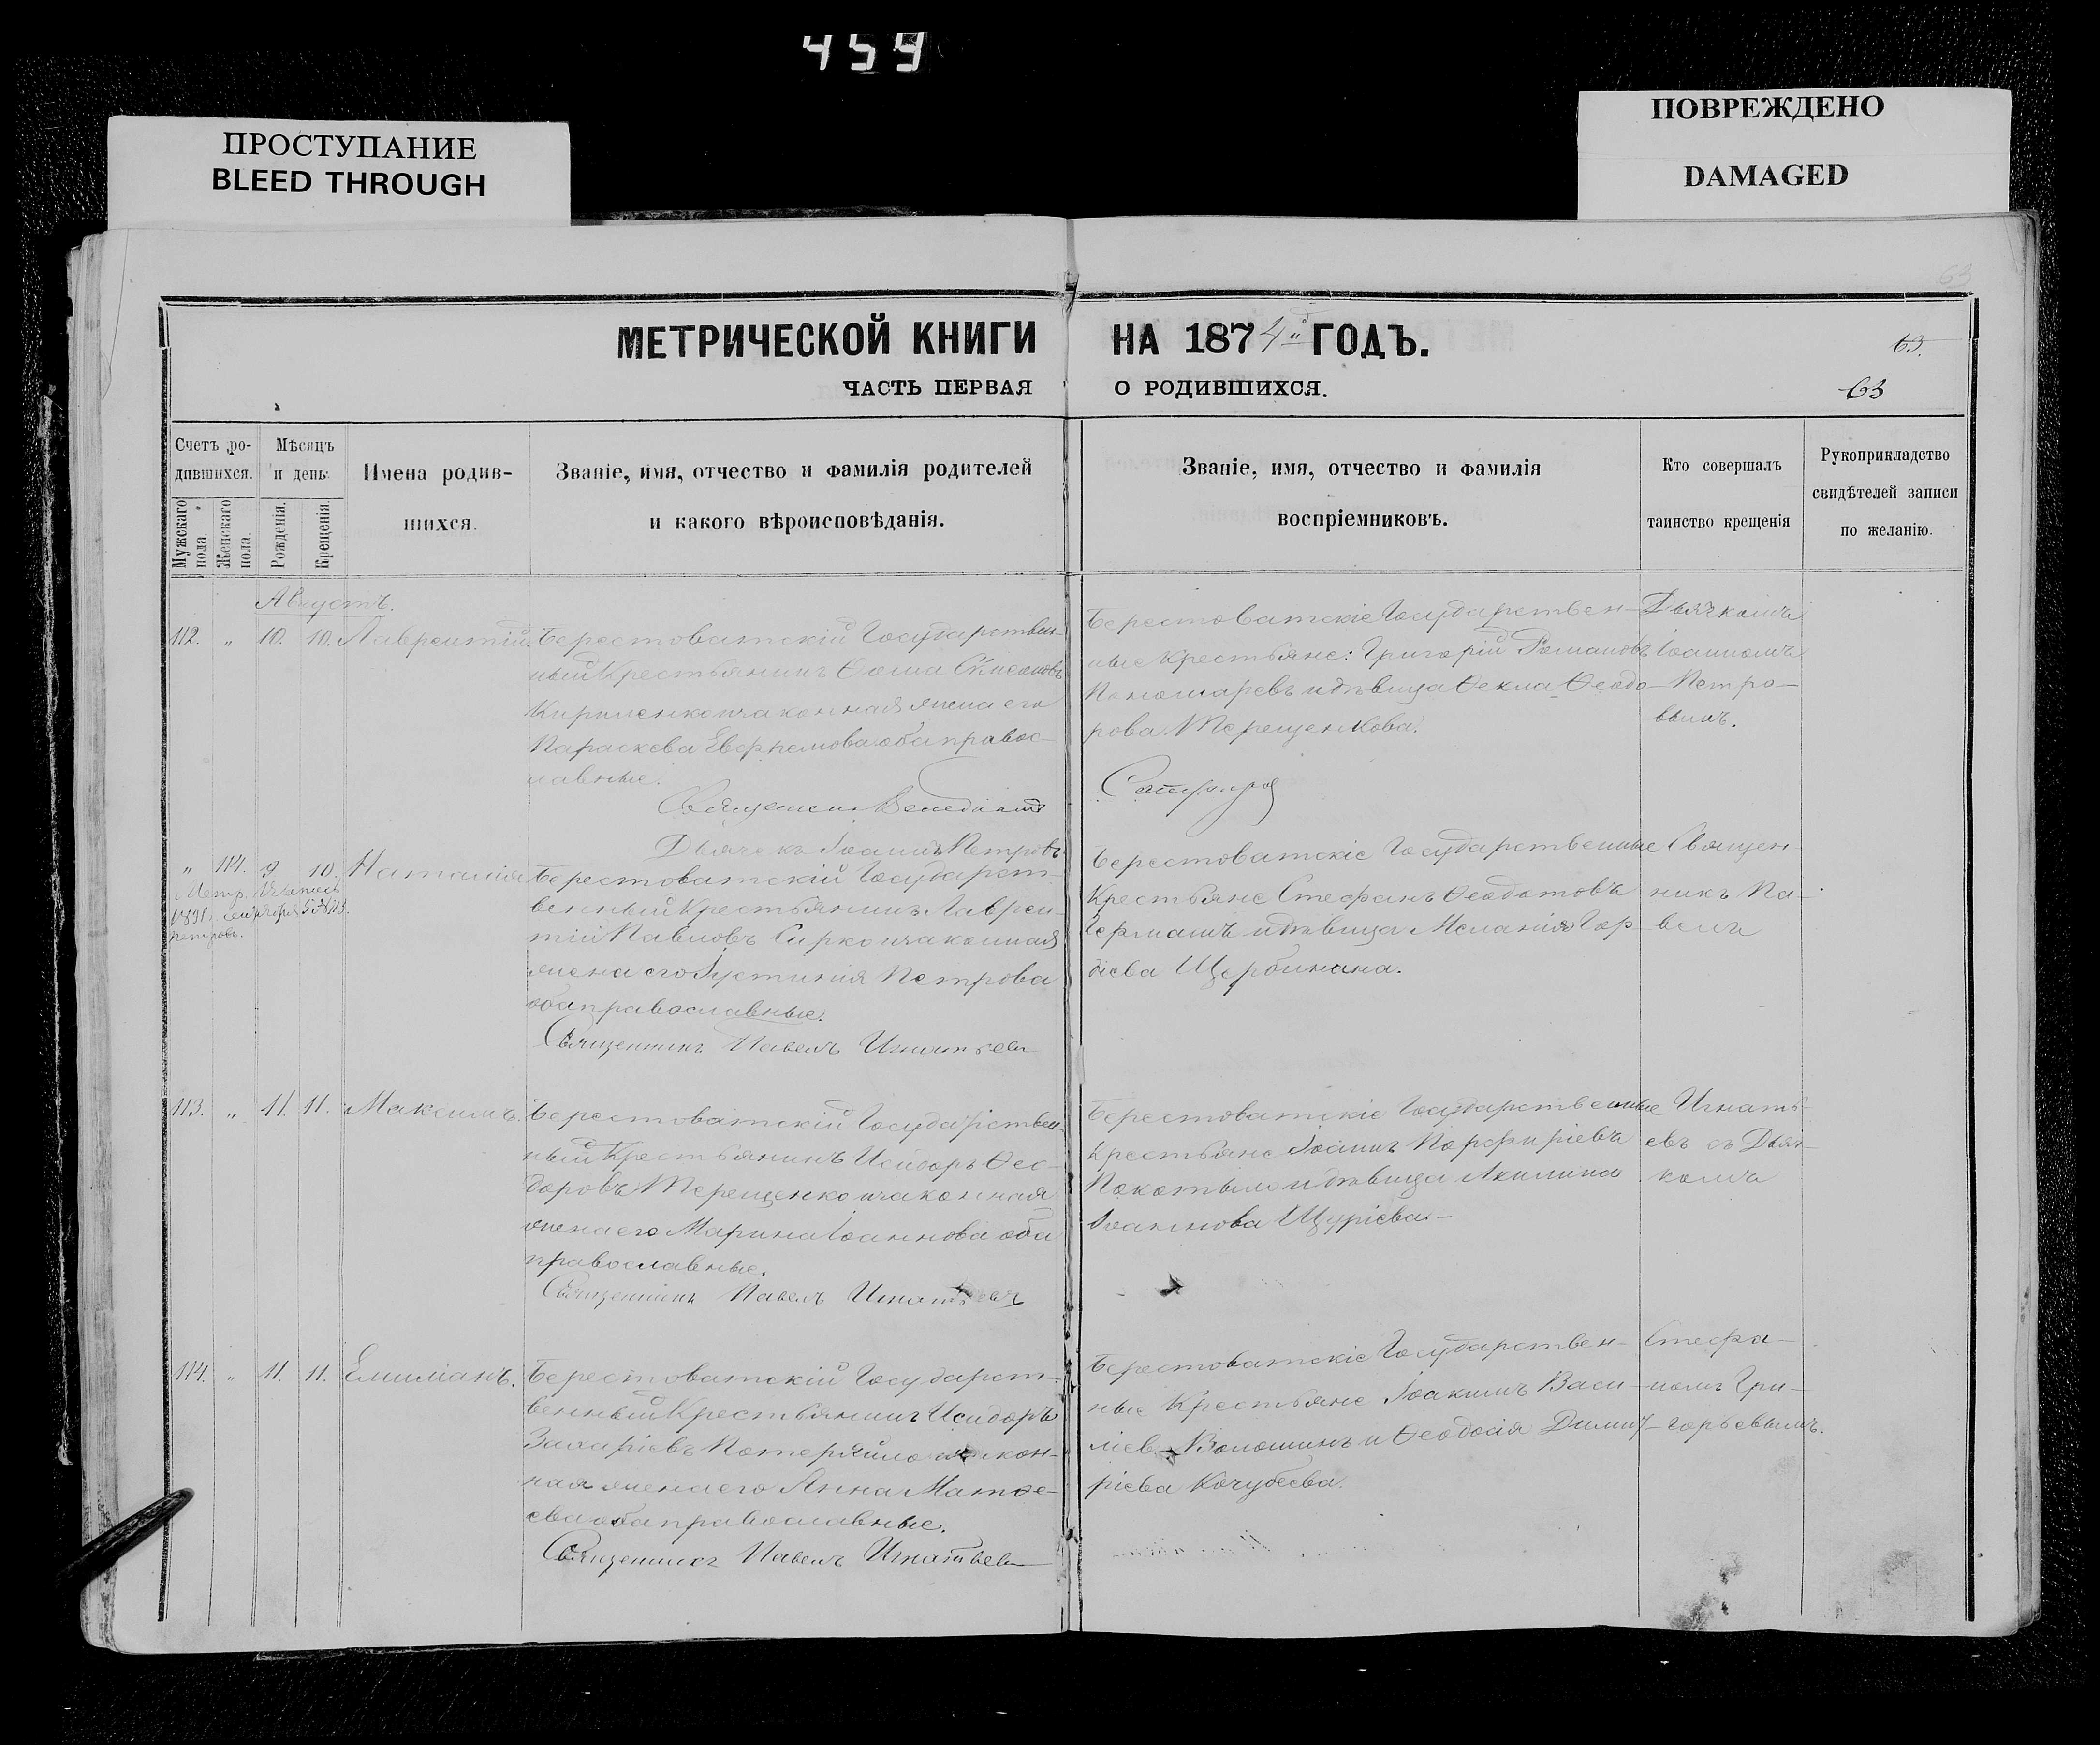 459
ПРОСТУПАНИЕ
BLEED THROUGH
ПОВРЕЖДЕНО
DAMAGED
63
МЕТРИЧЕСКОЙ КНИГИ НА 1874й ГОДЪ.
63.
ЧАСТЬ ПЕРВАЯ О РОДИВШИХСЯ.
63
Счетъ ро-
дившихся.
Мужскаго пола.
Женскаго пола.
Мѣсяцъ
и день.
Рожденія.
Крещенія.
Имена родив-
шихся.
Званіе, имя, отчество и фамилія родителей
и какого вѣроисповѣданія.
Званіе, имя, отчество и фамилія
воспріемниковъ.
Кто совершалъ
таинство крещенія
Рукоприкладство
свидѣтелей записи
по желанію.
Августъ.
112. „ 10. 10. Лаврентій.
Берестоватскій Государствен-
ный Крестьянинъ Ѳома
Кириленко и законная жена его
Параскева оба правос-
лавные.
Священникъ Венедиктъ
Дьячекъ Іоаннъ Петровъ
Берестоватскіе Государствен-
ные Крестьяне: Григорій Романовъ
Пономаревъ и дѣвица Ѳекла Ѳеодо-
рова Терещенкова.
Дьячкомъ
Іоанномъ
Петро-
вымъ.
„ 114. 9 10. Наталія
Берестоватскій Государст-
венный Крестьянинъ Лаврен-
тій Павловъ Сирко и законная
жена его Іустинія Петрова
оба православные.
Священникъ Павелъ Игнатьевъ
Берестоватскіе Государственные
Крестьяне Стефанъ Ѳеодотовъ
Германъ и дѣвица Меланія Гор-
діева Щербинина.
Священ-
никъ Па-
велъ
113. „ 11. 11. Максимъ.
Берестоватскій Государствен-
ный Крестьянинъ Исидоръ Ѳео-
доровъ Терещенко и законная
жена его Марина Іоаннова оба
православные.
Священникъ Павелъ Игнатьевъ
Берестоватскіе Государственные
Крестьяне Іоаннъ Порфиріевъ
Покотыло и дѣвица Акилина
Іоаннова Щуріева.
Игнать-
евъ съ Дьяч-
комъ
114. „ 11. 11. Емиліанъ.
Берестоватскій Государст-
венный Крестьянинъ Исидоръ
Захаріевъ закон-
ная жена его Анна Матѳе-
ева оба православные.
Священникъ Павелъ Игнатьевъ
Берестоватскіе Государствен-
ные Крестьяне Іоакимъ Васи-
ліевъ Волошинъ и Ѳеодосія Димит-
ріева Кочубеева.
Стефа-
номъ Гри-
горьевымъ.